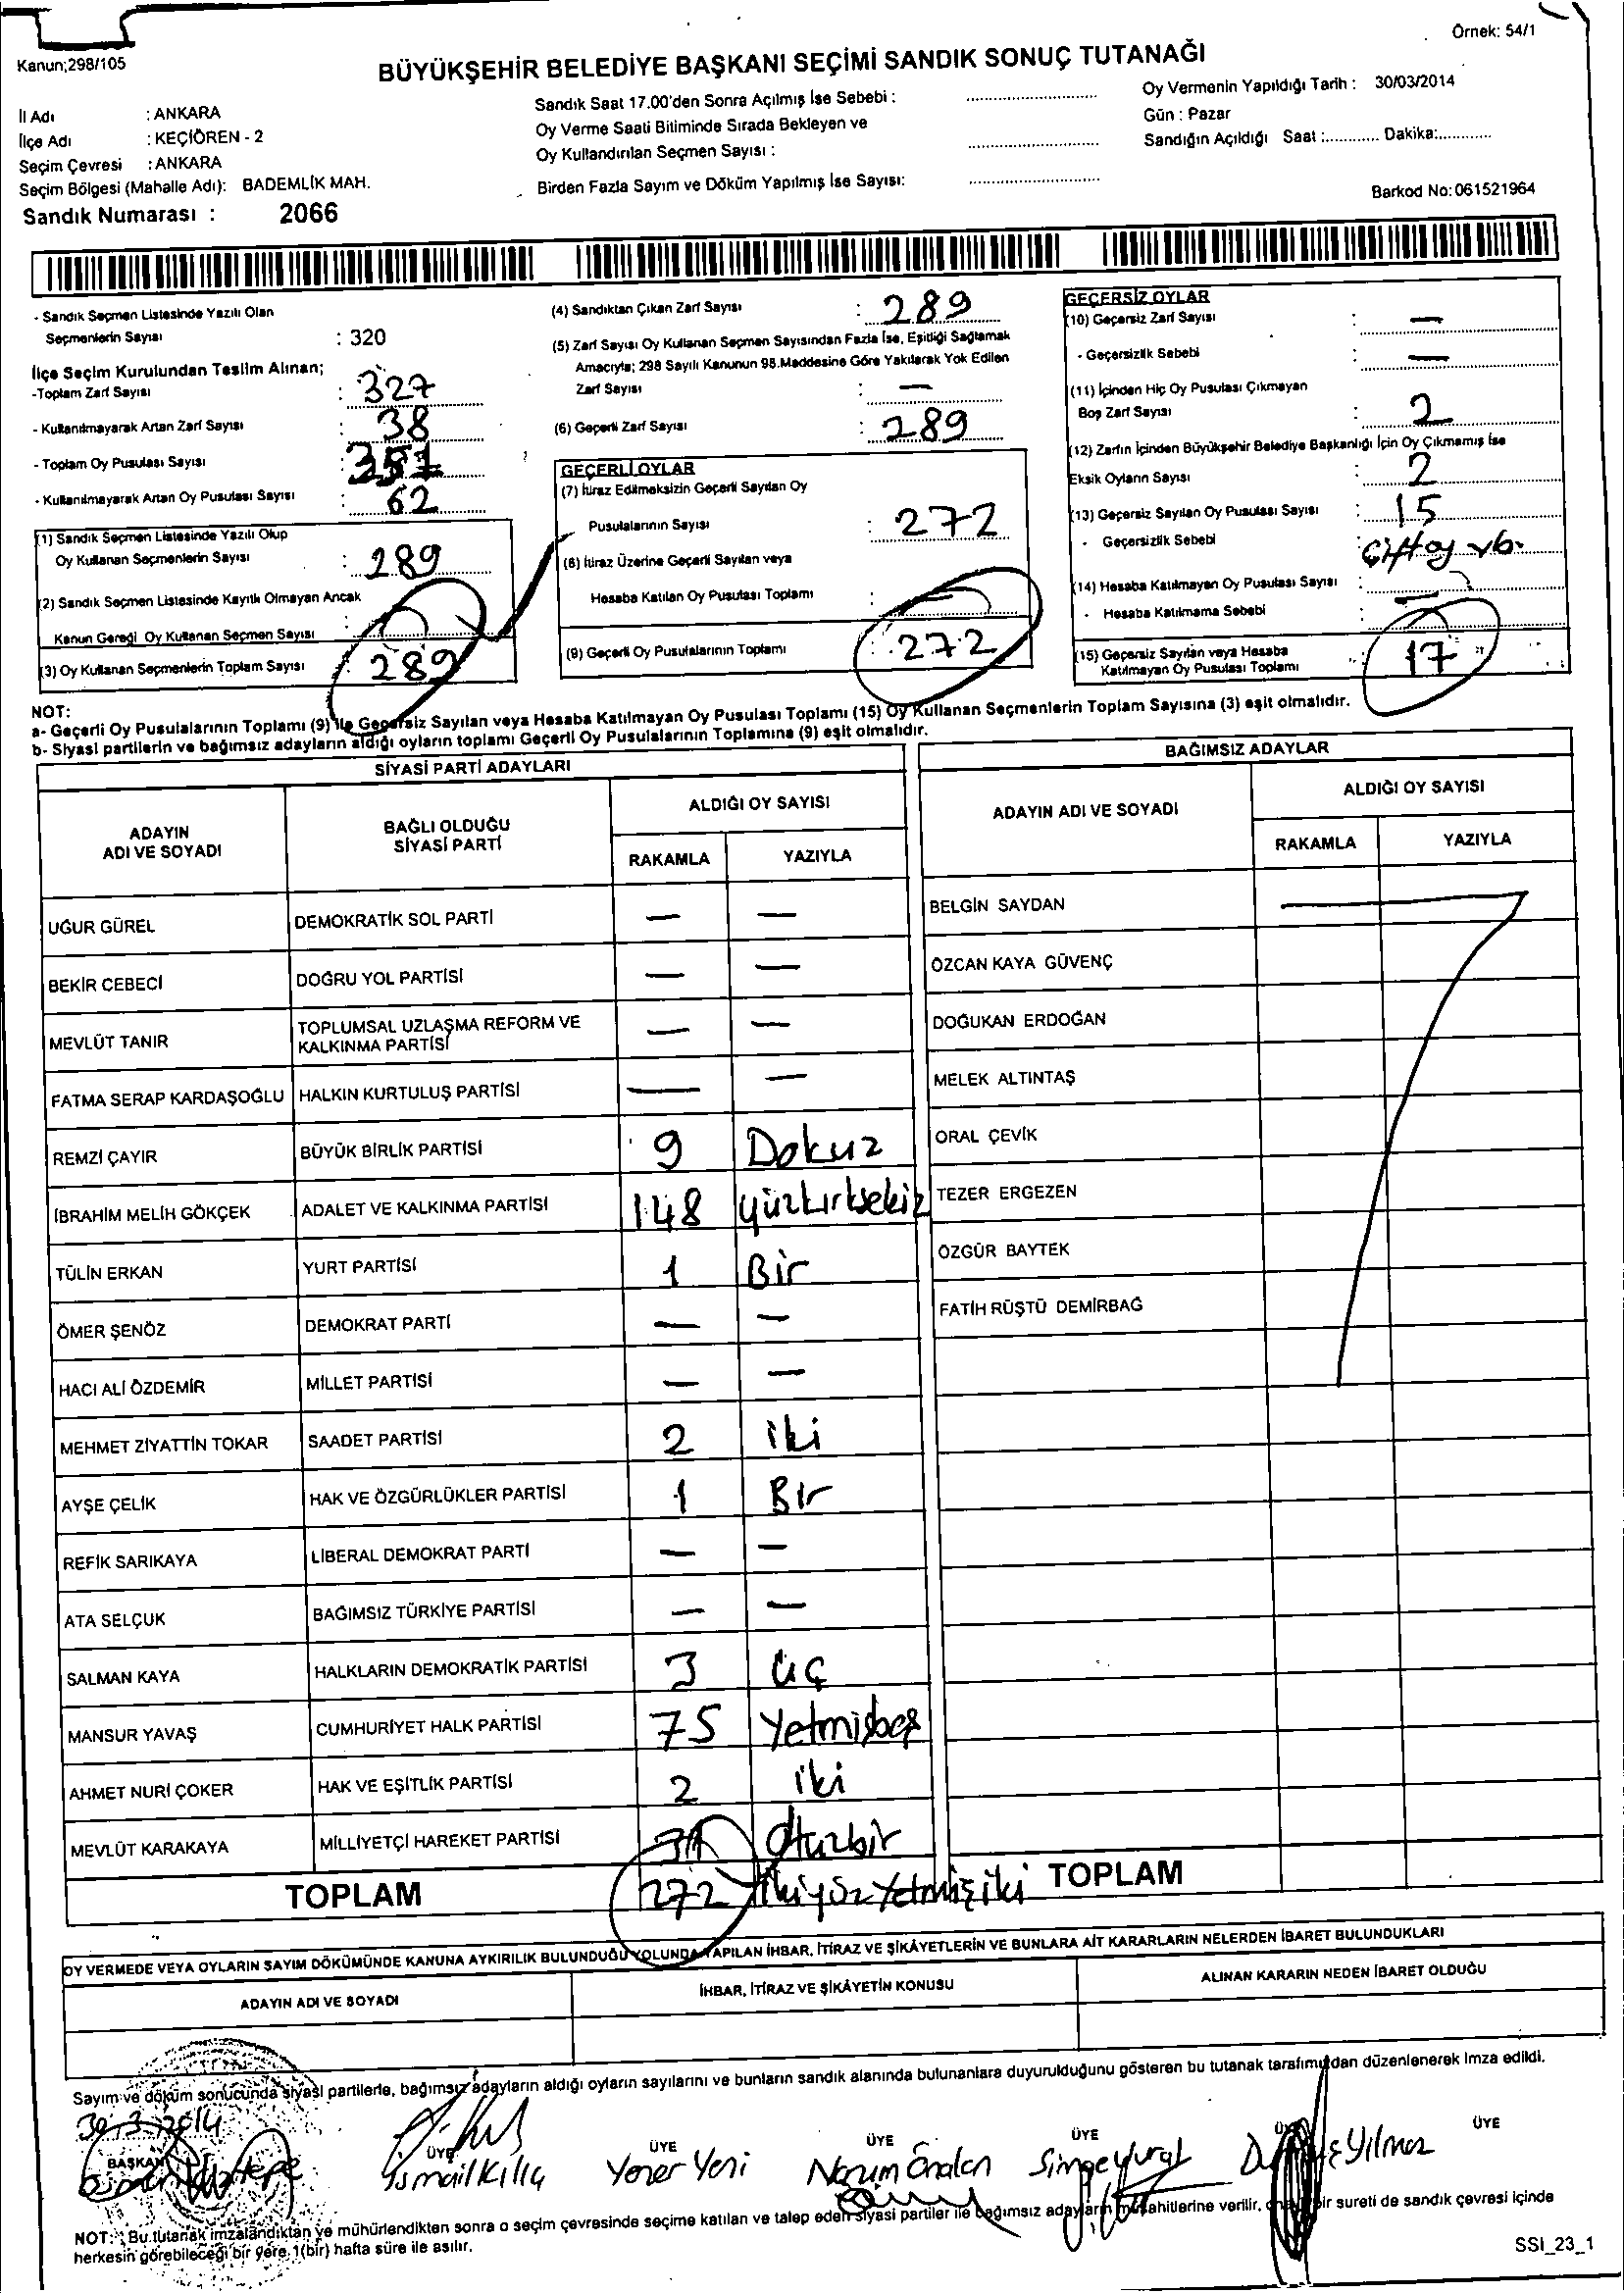 Örnek: 54/1
Kanun;298/105
BÜYÜKŞEHİR BELEDİYE BAŞKANI SEÇİMİ SANDIK SONUÇ TUTANAĞI
İl Adı : ANKARA
İlçe Adı : KEÇİÖREN - 2
Seçim Çevresi : ANKARA
Seçim Bölgesi (Mahalle Adı): BADEMLİK MAH.
Sandık Numarası : 2066
Sandık Saat 17.00'den Sonra Açılmış İse Sebebi :
Oy Verme Saati Bitiminde Sırada Bekleyen ve
Oy Kullandırılan Seçmen Sayısı :
Birden Fazla Sayım ve Döküm Yapılmış İse Sayısı:
Oy Vermenin Yapıldığı Tarih : 30/03/2014
Gün : Pazar
Sandığın Açıldığı Saat :............ Dakika:............
Barkod No: 061521964
- Sandık Seçmen Listesinde Yazılı Olan
Seçmenlerin Sayısı : 320
İlçe Seçim Kurulundan Teslim Alınan;
-Toplam Zarf Sayısı : 327
- Kullanılmayarak Artan Zarf Sayısı : 38
- Toplam Oy Pusulası Sayısı :
- Kullanılmayarak Artan Oy Pusulası Sayısı : 62
(1) Sandık Seçmen Listesinde Yazılı Olup
Oy Kullanan Seçmenlerin Sayısı : 289
(2) Sandık Seçmen Listesinde Kayıtlı Olmayan Ancak
Kanun Gereği Oy Kullanan Seçmen Sayısı :
(3) Oy Kullanan Seçmenlerin Toplam Sayısı : 289
(4) Sandıktan Çıkan Zarf Sayısı : 289
(5) Zarf Sayısı Oy Kullanan Seçmen Sayısından Fazla İse, Eşitliği Sağlamak
Amacıyla; 298 Sayılı Kanunun 98.Maddesine Göre Yakılarak Yok Edilen
Zarf Sayısı : —
(6) Geçerli Zarf Sayısı : 289
GEÇERLİ OYLAR
(7) İtiraz Edilmeksizin Geçerli Sayılan Oy
Pusulalarının Sayısı : 272
(8) İtiraz Üzerine Geçerli Sayılan veya
Hesaba Katılan Oy Pusulası Toplamı :
(9) Geçerli Oy Pusulalarının Toplamı : 272
GEÇERSİZ OYLAR
(10) Geçersiz Zarf Sayısı : —
- Geçersizlik Sebebi : —
(11) İçinden Hiç Oy Pusulası Çıkmayan
Boş Zarf Sayısı : 2
(12) Zarfın İçinden Büyükşehir Belediye Başkanlığı İçin Oy Çıkmamış İse
Eksik Oyların Sayısı : 2
(13) Geçersiz Sayılan Oy Pusulası Sayısı : 15
- Geçersizlik Sebebi : Çift oy vb.
(14) Hesaba Katılmayan Oy Pusulası Sayısı :
- Hesaba Katılmama Sebebi :
(15) Geçersiz Sayılan veya Hesaba
Katılmayan Oy Pusulası Toplamı : 17
NOT:
a- Geçerli Oy Pusulalarının Toplamı (9) ile Geçersiz Sayılan veya Hesaba Katılmayan Oy Pusulası Toplamı (15) Oy Kullanan Seçmenlerin Toplam Sayısına (3) eşit olmalıdır.
b- Siyasi partilerin ve bağımsız adayların aldığı oyların toplamı Geçerli Oy Pusulalarının Toplamına (9) eşit olmalıdır.
SİYASİ PARTİ ADAYLARI
ADAYIN ADI VE SOYADI BAĞLI OLDUĞU SİYASİ PARTİ ALDIĞI OY SAYISI
RAKAMLA YAZIYLA
UĞUR GÜREL DEMOKRATİK SOL PARTİ — —
BEKİR CEBECİ DOĞRU YOL PARTİSİ — —
MEVLÜT TANIR TOPLUMSAL UZLAŞMA REFORM VE KALKINMA PARTİSİ — —
FATMA SERAP KARDAŞOĞLU HALKIN KURTULUŞ PARTİSİ — —
REMZİ ÇAYIR BÜYÜK BİRLİK PARTİSİ 9 Dokuz
İBRAHİM MELİH GÖKÇEK ADALET VE KALKINMA PARTİSİ 148 yüzkırksekiz
TÜLİN ERKAN YURT PARTİSİ 1 Bir
ÖMER ŞENÖZ DEMOKRAT PARTİ — —
HACI ALİ ÖZDEMİR MİLLET PARTİSİ — —
MEHMET ZİYATTİN TOKAR SAADET PARTİSİ 2 iki
AYŞE ÇELİK HAK VE ÖZGÜRLÜKLER PARTİSİ 1 Bir
REFİK SARIKAYA LİBERAL DEMOKRAT PARTİ — —
ATA SELÇUK BAĞIMSIZ TÜRKİYE PARTİSİ — —
SALMAN KAYA HALKLARIN DEMOKRATİK PARTİSİ 3 üç
MANSUR YAVAŞ CUMHURİYET HALK PARTİSİ 75 Yetmişbeş
AHMET NURİ ÇOKER HAK VE EŞİTLİK PARTİSİ 2 iki
MEVLÜT KARAKAYA MİLLİYETÇİ HAREKET PARTİSİ 31 Otuzbir
TOPLAM 272 İkiyüz Yetmişiki
BAĞIMSIZ ADAYLAR
ADAYIN ADI VE SOYADI ALDIĞI OY SAYISI
RAKAMLA YAZIYLA
BELGİN SAYDAN
ÖZCAN KAYA GÜVENÇ
DOĞUKAN ERDOĞAN
MELEK ALTINTAŞ
ORAL ÇEVİK
TEZER ERGEZEN
ÖZGÜR BAYTEK
FATİH RÜŞTÜ DEMİRBAĞ
TOPLAM
OY VERMEDE VEYA OYLARIN SAYIM DÖKÜMÜNDE KANUNA AYKIRILIK BULUNDUĞU YOLUNDA YAPILAN İHBAR, İTİRAZ VE ŞİKÂYETLERİN VE BUNLARA AİT KARARLARIN NELERDEN İBARET BULUNDUKLARI
ADAYIN ADI VE SOYADI İHBAR, İTİRAZ VE ŞİKÂYETİN KONUSU ALINAN KARARIN NEDEN İBARET OLDUĞU
Sayım ve döküm sonucunda siyasi partilerle, bağımsız adayların aldığı oyların sayılarını ve bunların sandık alanında bulunanlara duyurulduğunu gösteren bu tutanak tarafımızdan düzenlenerek imza edildi.
30.3.2014
BAŞKAN ÜYE ÜYE ÜYE ÜYE ÜYE ÜYE
İsmail Kılıç Yener Yeni Nazım Önalan Simge Vural Yılmaz
NOT: Bu tutanak imzalandıktan ve mühürlendikten sonra o seçim çevresinde seçime katılan ve talep eden siyasi partiler ile bağımsız adayların müşahitlerine verilir, bir sureti de sandık çevresi içinde
herkesin görebileceği bir yere 1(bir) hafta süre ile asılır.
SSI_23_1